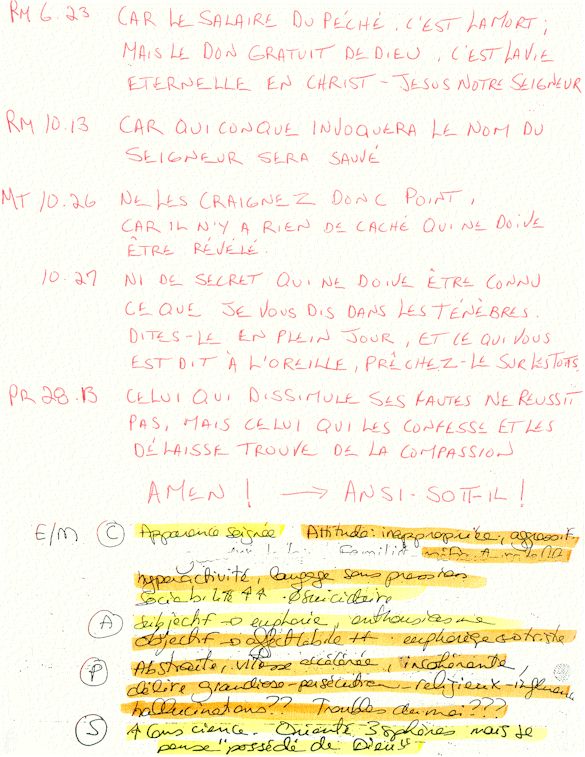 RM 6.23 CAR LE SALAIRE DU PÉCHÉ, C'EST LA MORT;
MAIS LE DON GRATUIT DE DIEU, C'EST LA VIE
ÉTERNELLE EN CHRIST-JESUS NOTRE SEIGNEUR
RM 10.13 CAR QUICONQUE INVOQUERA LE NOM DU
SEIGNEUR SERA SAUVÉ
MT 10.26 NE LES CRAIGNEZ DONC POINT,
CAR IL N'Y A RIEN DE CACHÉ QUI NE DOIVE
ÊTRE RÉVÉLÉ.
10.27 NI DE SECRET QUI NE DOIVE ÊTRE CONNU
CE QUE JE VOUS DIS DANS LES TÉNÈBRES.
DITES-LE EN PLEIN JOUR, ET CE QUI VOUS
EST DIT À L'OREILLE, PRÊCHEZ-LE SUR LES TOITS
PR 28.13 CELUI QUI DISSIMULE SES FAUTES NE RÉUSSIT
PAS, MAIS CELUI QUI LES CONFESSE ET LES
DÉLAISSE TROUVE DE LA COMPASSION
AMEN! → AINSI-SOIT-IL!
E/M C Apparence soignée Attitude: inappropriée, agressif,
hyperactivité, langage sous pression
Sociabilité ↑↑ Ø suicidaire
A subjectif → euphorie, enthousiasme
objectif → affect labile ++ euphorique à triste
P Abstraite, vitesse accélérée, incohérente,
délire grandiose-persécution-religieux-influence
hallucinations?? Troubles du moi???
S conscience. Orienté 3 sphères mais se
pense "possédé de Dieu"